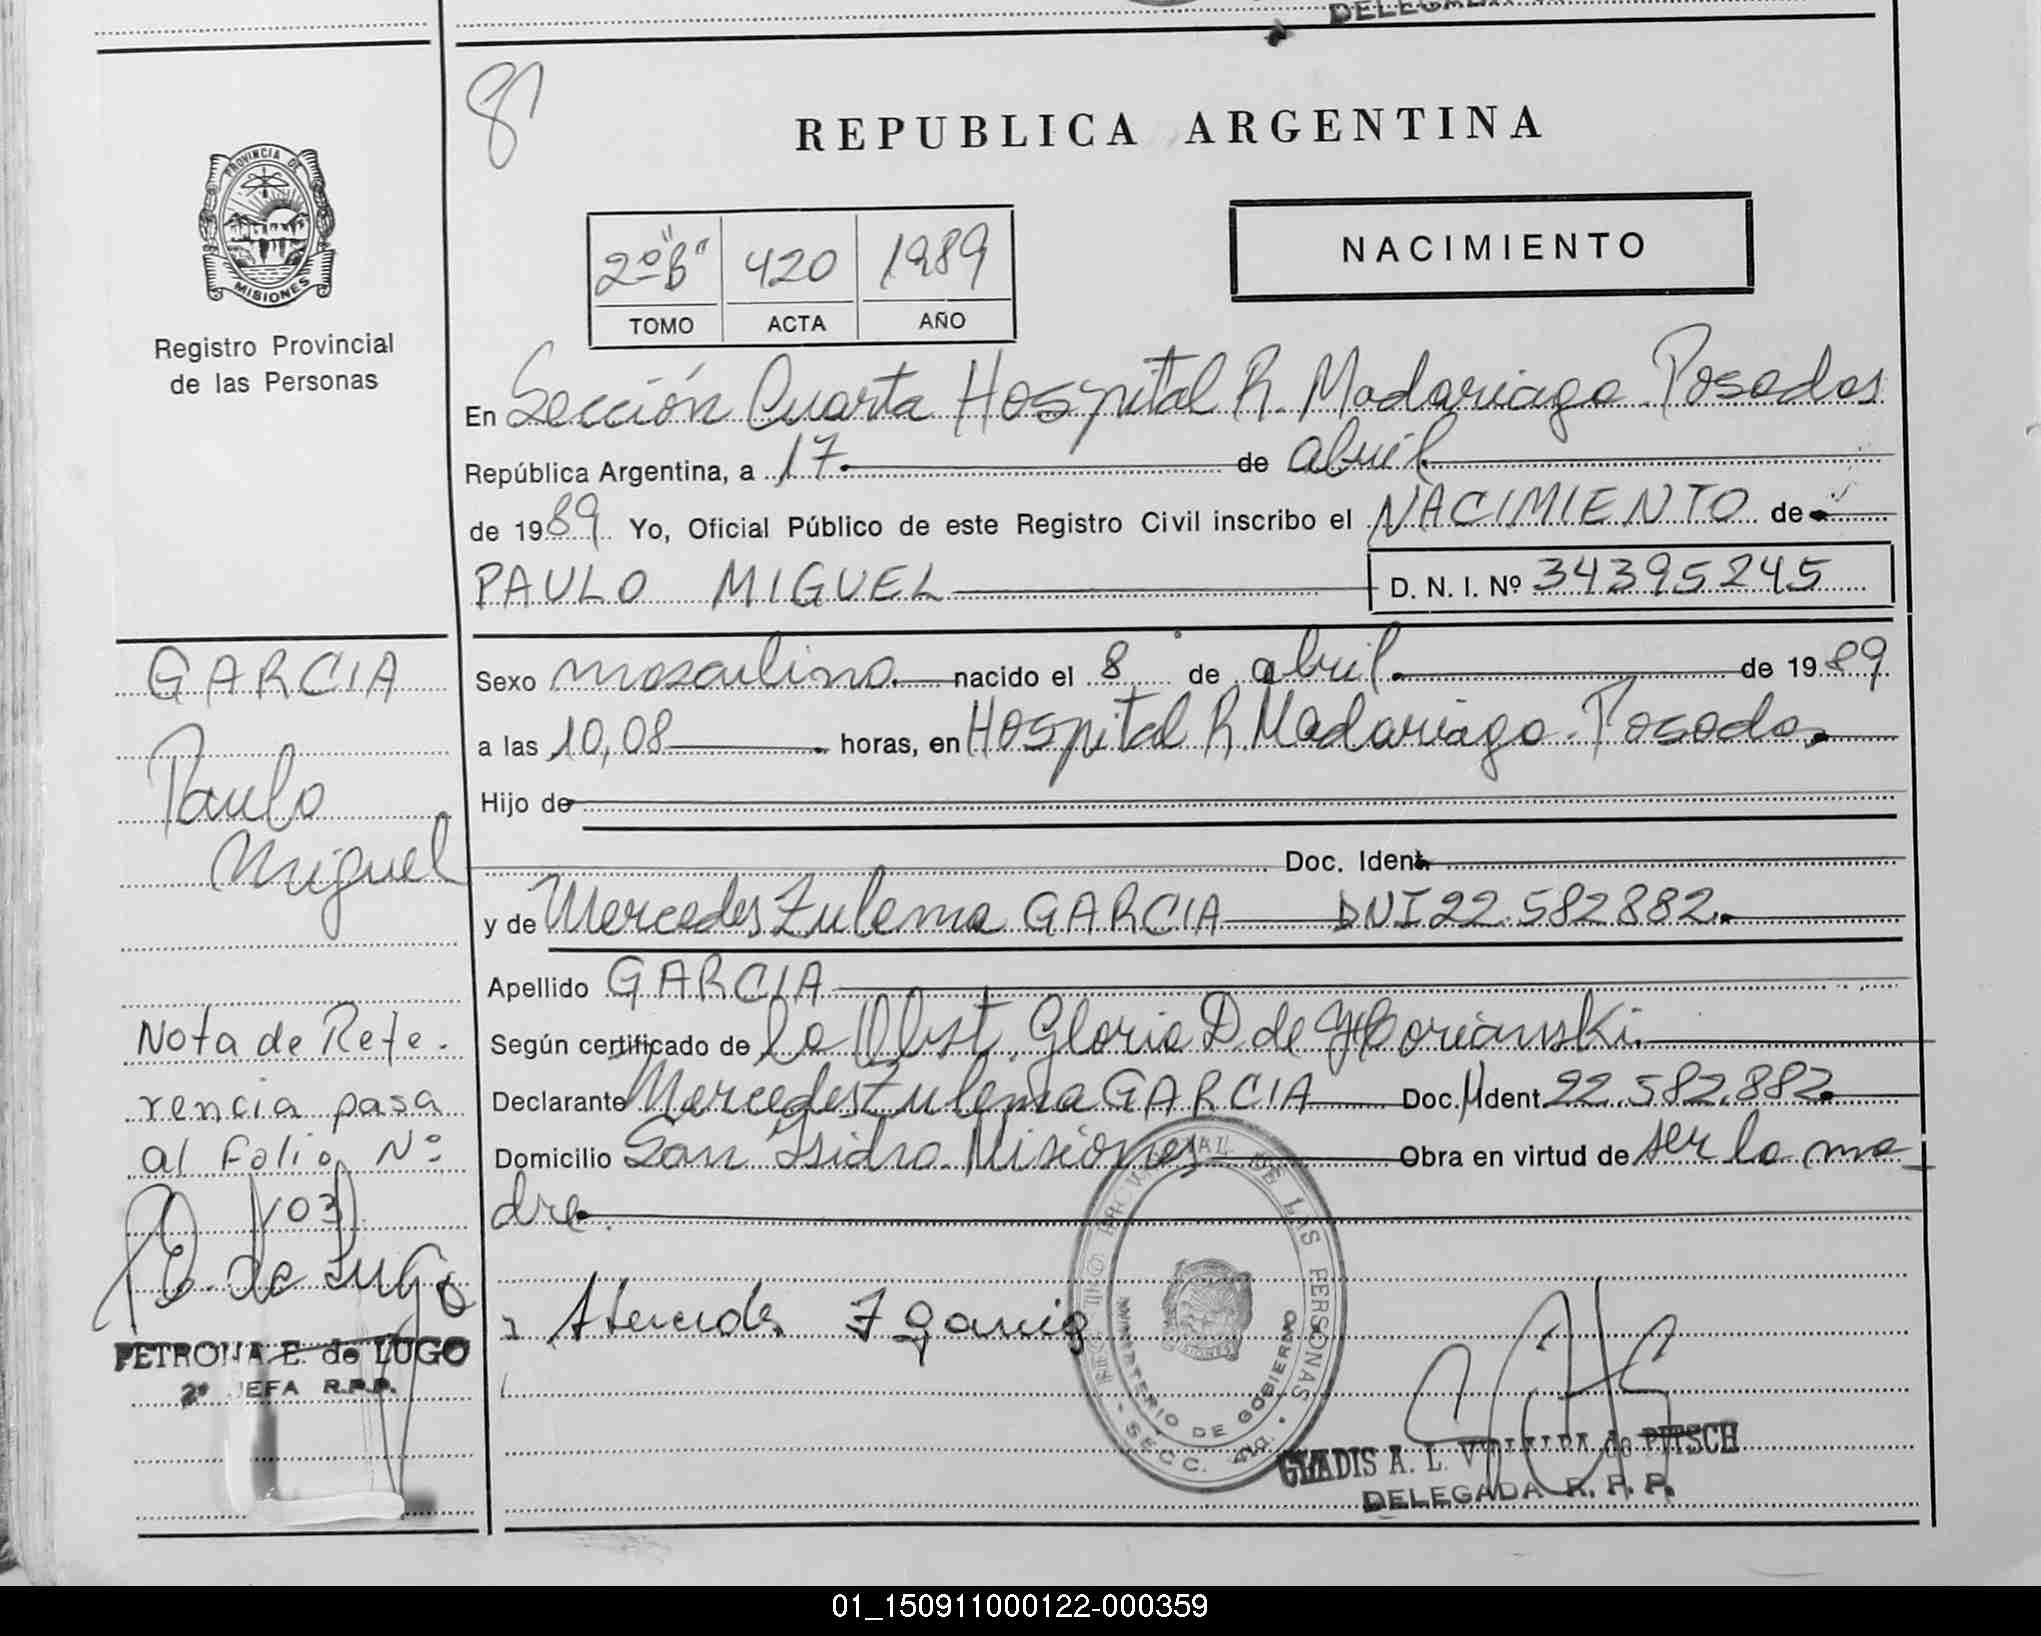 DELEGADA
81
REPUBLICA ARGENTINA
PROVINCIA DE
MISIONES
Registro Provincial
de las Personas
2º "B" 420 1989
TOMO ACTA AÑO
NACIMIENTO
En Sección Cuarta Hospital R. Madariaga Posadas
República Argentina, a 17 de abril
de 1989 Yo, Oficial Público de este Registro Civil inscribo el NACIMIENTO de
PAULO MIGUEL D. N. I. Nº 34395245
GARCIA
Paulo
Miguel
Sexo masculino nacido el 8 de abril de 1989
a las 10,08 horas, en Hospital R. Madariaga. Posadas
Hijo de
Doc. Ident.
y de Mercedes Zulema GARCIA DNI 22.582.882.
Apellido GARCIA
Según certificado de la Obst. Gloria D. de
Declarante Mercedes Zulema GARCIA Doc. Ident. 22.582.882.
Domicilio San Isidro. Misiones Obra en virtud de ser la ma
dre.
Nota de Refe.
rencia pasa
al folio Nº
103
P.E. de Lugo
PETRONA E. de LUGO
2º JEFA R.P.P.
REGISTRO PROVINCIAL DE LAS PERSONAS
MINISTERIO DE GOBIERNO
SECC. 4ta.
GLADIS A. L. VILLALBA de PITSCH
DELEGADA R. P. P.
01_150911000122-000359